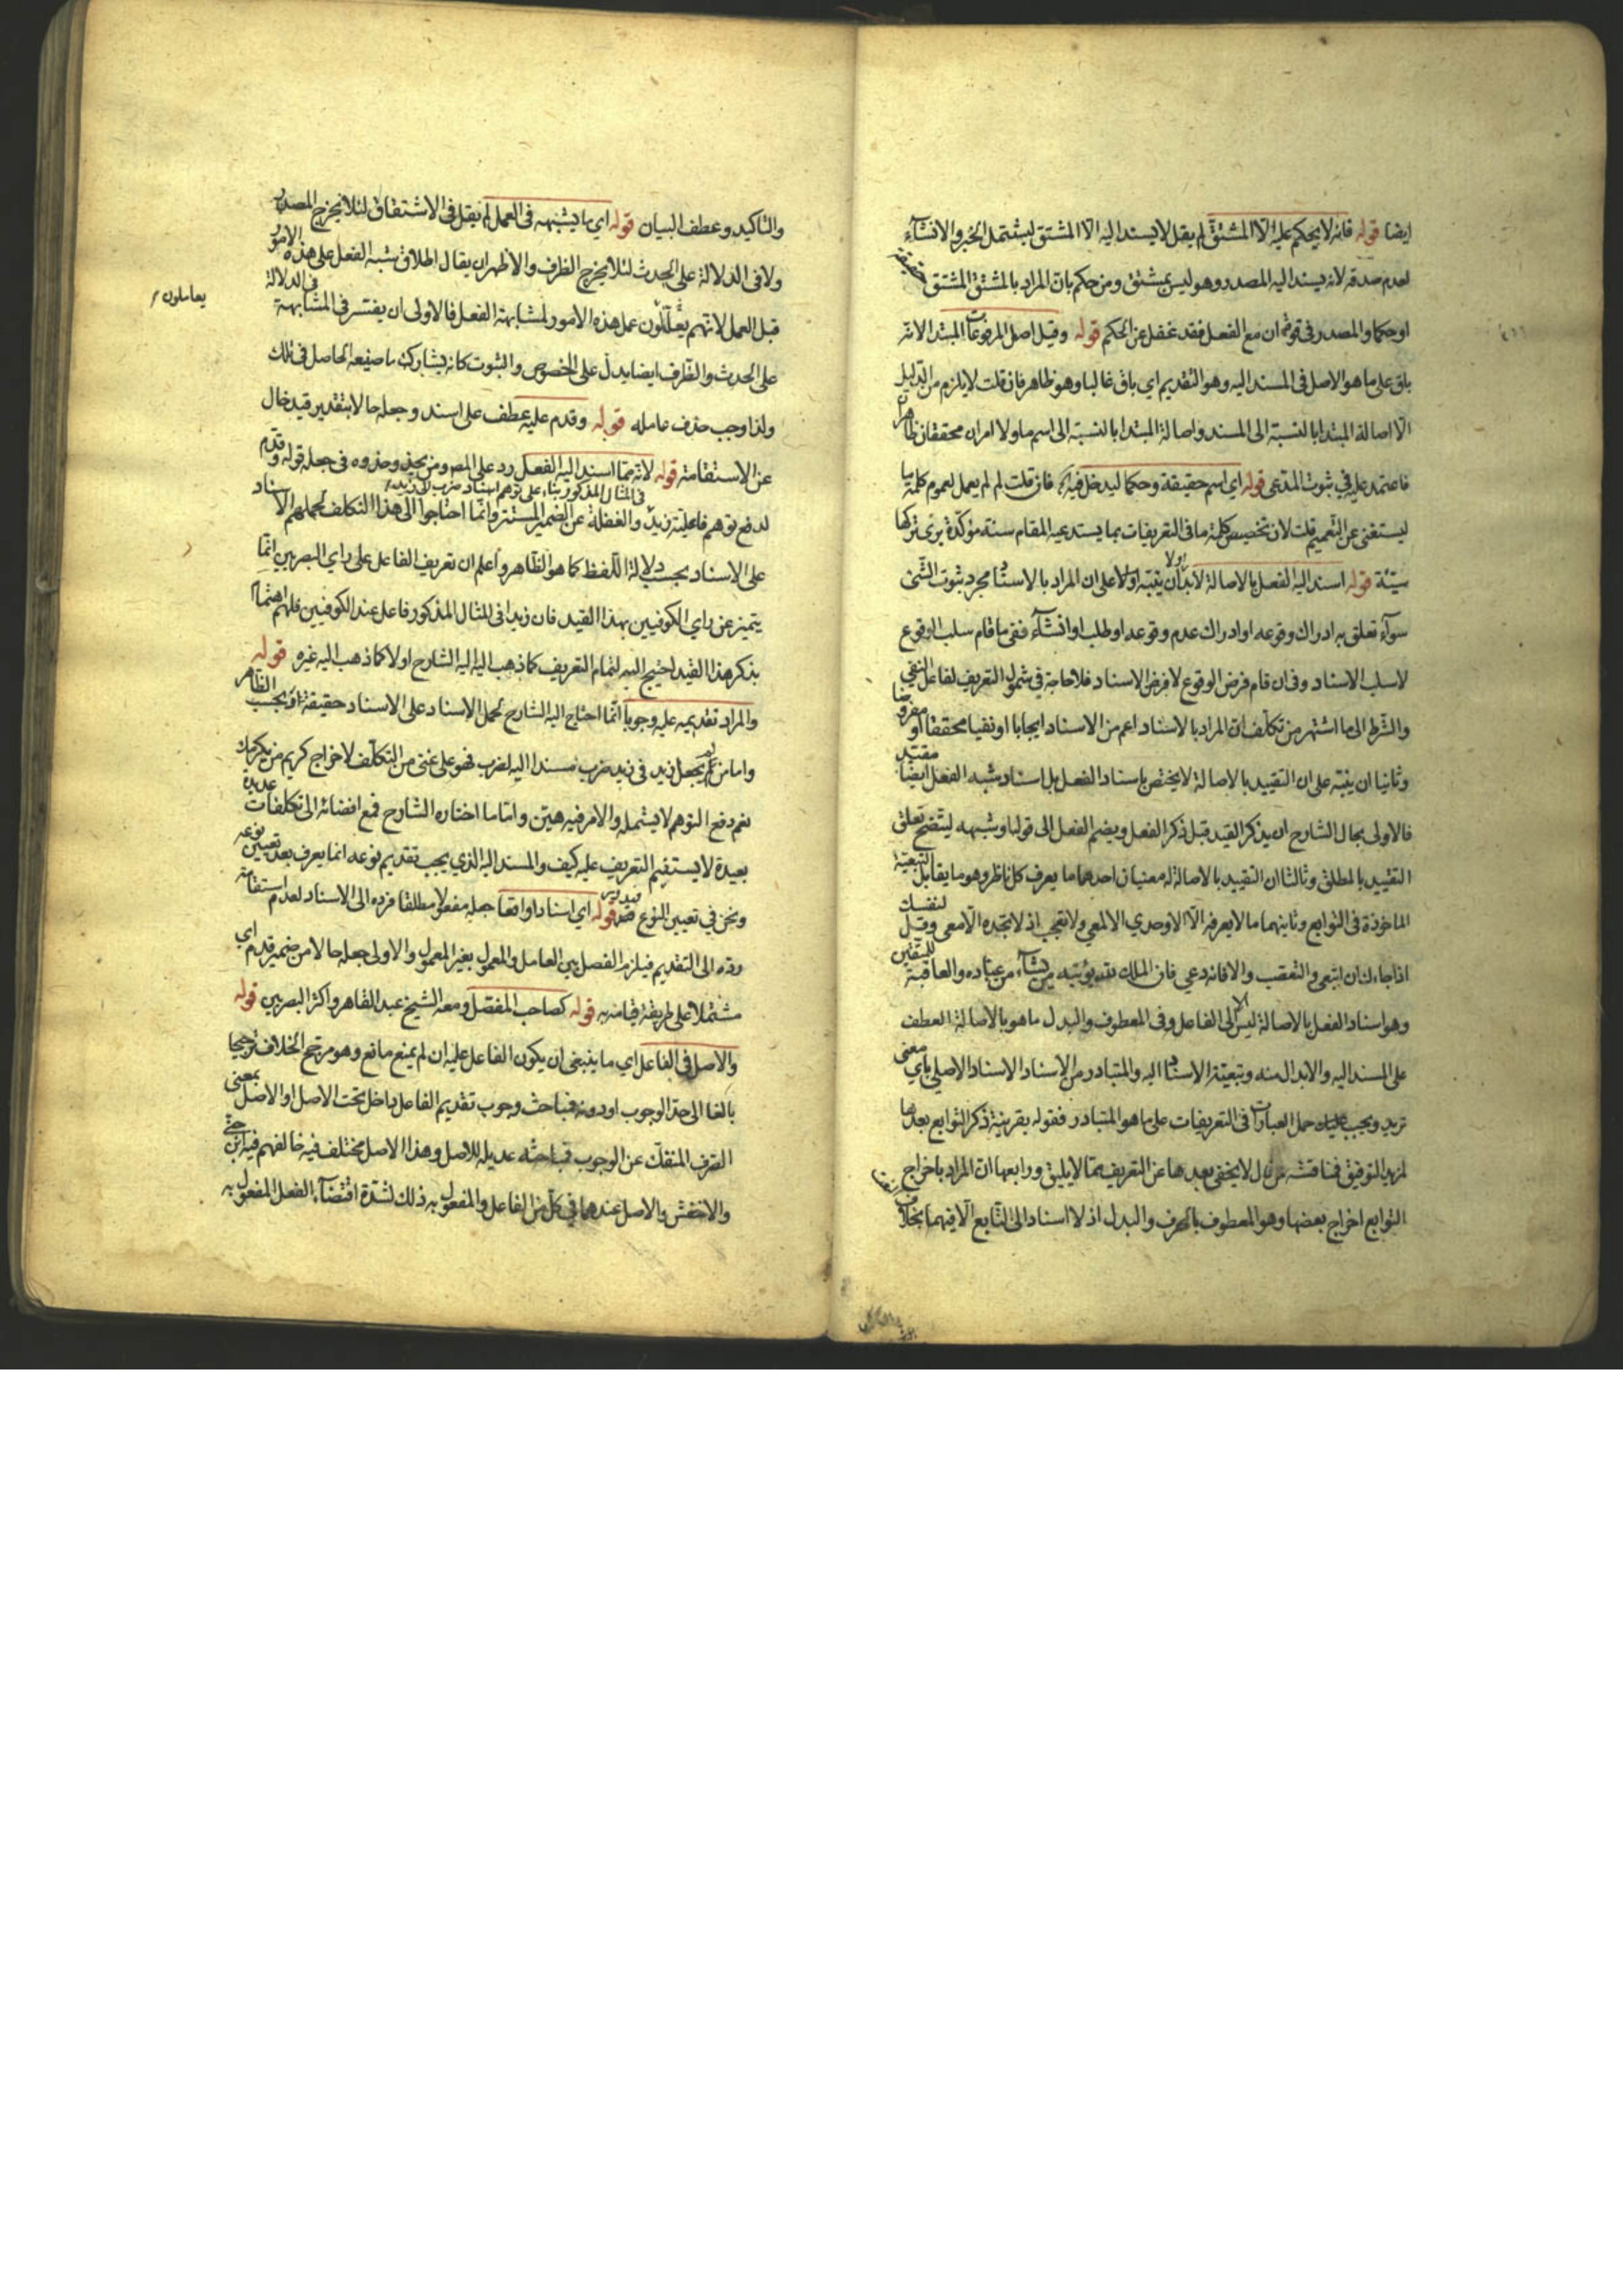 ايضا قوله فانه لا يحكم عليه الا المشتق لم يقل لا يسند اليه الا المشتق ليشتمل الخبر والانشاء
لعدم صدقه لانه يسند اليه المصدر وهو ليس بمشتق ومن حكم بان المراد بالمشتق المشتق حقيقة
او حكما والمصدر في قوة ان مع الفعل فقد غفل عن الحكم قوله وقيل اصل المرفوعات المبتدا لانه
باق على ما هو الاصل في المسند اليه وهو التقديم اي باق غالبا وهو ظاهر فان قلت لا يلزم من الدليل
الا اصالة المبتدا بالنسبة الى المسند واصالة المبتدا بالنسبة الى اسم ما ولا امران محققان ظاهرا
فاعتمد عليه في ثبوت المدعى قوله اي اسم حقيقة وحكما ليدخل فيه فان قلت لم لم يعمل لعموم كلمة ما
ليستغنى عن التعميم قلت لان تخصيص كلمة ما في التعريفات بما يستدعيه المقام سنة مؤكدة يرى تركها
سيئة قوله اسند اليه الفعل بالاصالة لا بد ان ينبه اولا على ان المراد بالاسناد مجرد ثبوت الشئ
سواء تعلق به ادراك وقوعه او ادراك عدم وقوعه او طلب او انشاء ففي ما قام سلب الوقوع
لا سلب الاسناد وفي ان قام فرض الوقوع لا فرض الاسناد فلا حاجة في شمول التعريف لفاعل النفي
والشرط الى ما اشتهر من تكلف ان المراد بالاسناد اعم من الاسناد ايجابا او نفيا محققا او مفروضا
وثانيا ان ينبه على ان التقييد بالاصالة لا يختص باسناد الفعل بل اسناد شبه الفعل ايضا مقيد
فالاولى بحال الشارح ان يذكر القيد قبل ذكر الفعل ويضم الفعل الى قولنا وشبهه ليتضح تعلق
التقييد بالمطلق وثالثا ان التقييد بالاصالة له معنيان احدهما ما يعرف كل ناظر وهو ما يقابل التبعية
الماخوذة في التوابع وثانيهما ما لا يعرفه الا الاوحدي الالمعي ولا تعجب اذ لا تجده الا معي وقل لنفسك
اذا جاءك ان اتبعي والتعصب والا فانه دعي فان الملك لله يؤتيه من يشاء من عباده والعاقبة للمتقين
وهو اسناد الفعل بالاصالة ليس الا الى الفاعل وفي المعطوف والبدل ما هو بالاصالة العطف
على المسند اليه والابدال منه وتبعية الاسناد اليه والمتبادر من الاسناد الاسناد الاصلي باي معنى
تريد ويجب عليك حمل العبارات في التعريفات على ما هو المتبادر فقوله بقرينة ذكر التوابع بعد ما
لمزيد التوفيق فمناقشة من قال لا يخفى بعدها عن التعريف مما لا يليق ورابعها ان المراد باخراج
التوابع اخراج بعضها وهو المعطوف بالحرف والبدل اذ لا اسناد الى التابع الا فيهما بخلاف
والتاكيد وعطف البيان قوله اي ما يشبهه في العمل لم يقل في الاشتقاق لئلا يخرج المصدر
ولا في الدلالة على الحدث لئلا يخرج الظرف والاظهر ان يقال اطلاق شبه الفعل على هذه الامور
قبل العمل لانهم يعللون عمل هذه الامور لمشابهة الفعل فالاولى ان يفسر في المشابهة في الدلالة
يعاملون
على الحدث والظرف ايضا يدل على الخصوص والثبوت كانه يشارك ما صيغه الحاصل في تلك
ولذا وجب حذف عامله قوله وقدم عليه عطف على اسند وجعله حالا بتقدير قيد خال
عن الاستقامة قوله لانه مما اسند اليه الفعل رد على المص ومن يحذو حذوه في جعله قوله وقدم
في المثال المذكور بناء على توهم اسناد ضرب الى زيد
لدفع توهم فاعلية زيد والغفلة عن الضمير المستتر وانما احتاجوا الى هذا التكلف لحملهم الاسناد
على الاسناد بحسب دلالة اللفظ كما هو الظاهر واعلم ان تعريف الفاعل على راي البصريين انما
يتميز عن راي الكوفيين بهذا القيد فان زيدا في المثال المذكور فاعل عند الكوفيين فلهم اهتمام
بذكر هذا القيد احتيج اليه لتمام التعريف كما ذهب اليه الشارح او لا كما ذهب اليه غيره قوله
والمراد تقديمه عليه وجوبا انما احتاج اليه الشارح لحمل الاسناد على الاسناد حقيقة او بحسب الظاهر
واما من لم يجعل زيد في زيد ضرب مسندا اليه لضرب فهو على غنى من التكلف لاخراج كريم من يكرمك
نعم دفع التوهم لا يشمله والامر فيه هين واما ما اختاره الشارح فمع افضائه الى تكلفات عديدة
بعيدة لا يستقيم التعريف عليه كيف والمسند اليه الذي يجب تقديم نوعه انما يعرف بعد تعيين نوعه
ونحن في تعيين النوع قوله اي اسنادا واقعا جعله مفعولا مطلقا فرده الى الاسناد لعدم استقامة
رده الى التقديم فيلزم الفصل بين العامل والمعمول بغير المعمول والاولى جعله حالا من ضمير قدم اي
مشتملا على طريقة قيامه به قوله كصاحب المفصل ومعه الشيخ عبد القاهر واكثر البصريين قوله
والاصل في الفاعل اي ما ينبغي ان يكون الفاعل عليه ان لم يمنع مانع وهو مرجح الخلاف ترجيحا
بالغا الى حد الوجوب او دونه فمباحث وجوب تقديم الفاعل داخل تحت الاصل او الاصل بمعنى
الطرف المنفك عن الوجوب فمباحثه عديله للاصل وهذا الاصل مختلف فيه خالفهم فيه ابن جني
والاخفش والاصل عندهما في كل من الفاعل والمفعول به ذلك لشدة اقتضاء الفعل المفعول به